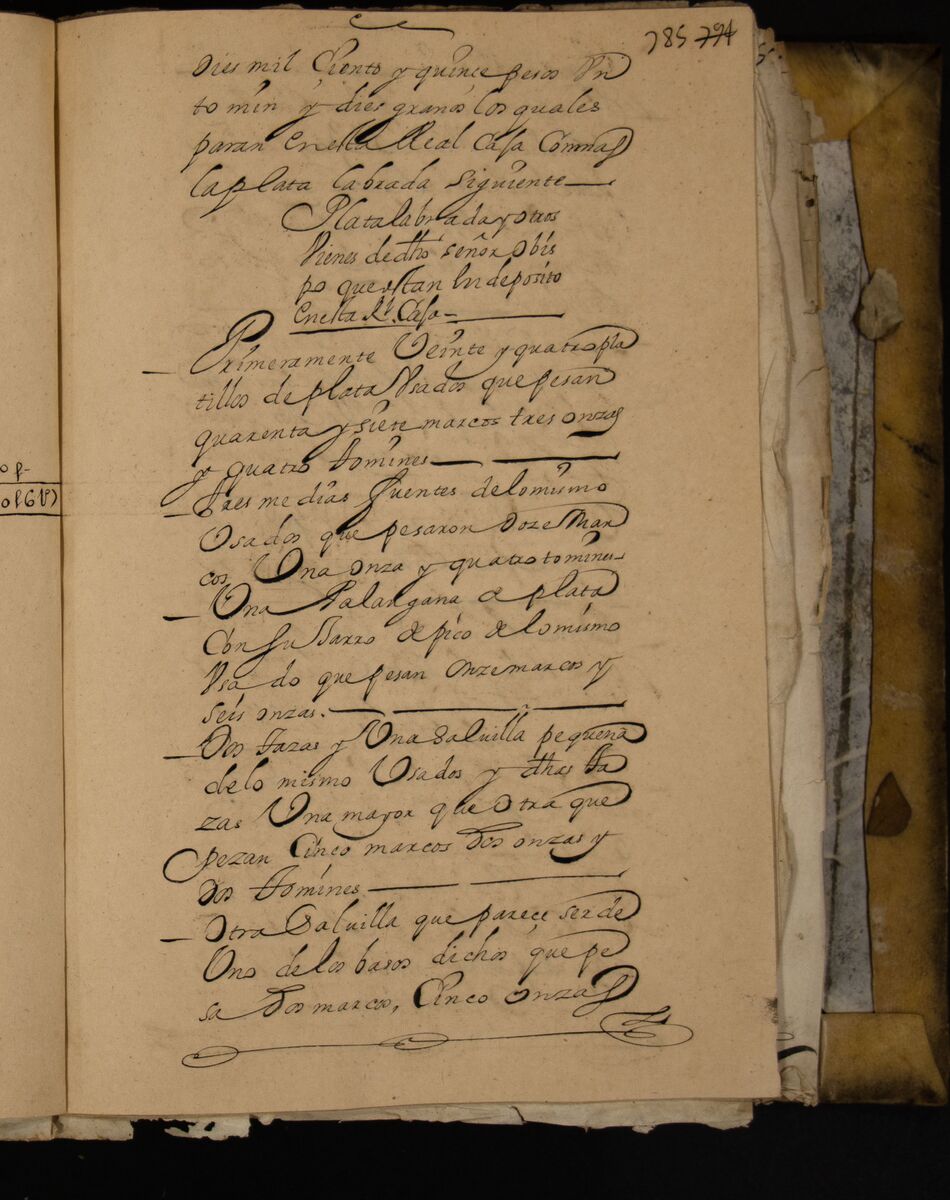 785 794
Dies mil Çiento y quinçe pesos Un
to min y dies granos los quales
paran en esta Real Casa Con mas
la plata labrada siguiente
Plata labrada y otros
Vienes de dho señor obis
po que estan en deposito
en esta Rl. Casa
Primeramente Veinte y quatro pla
tillos de plata Vsados que pesan
quarenta y siete marcos tres onzas
y quatro tomines
tres medias fuentes de lo mismo
Vsados que pesaron Doze Mar
cos Una onza y quatro tomines
Una Palangana de plata
Con su Jarro de pico de lo mismo
Vsado que pesan onze marcos y
seis onzas.
Dos tazas y Una Salvilla pequeña
de lo mismo Vsados y dhas ta
zas Una mayor que otra que
pezan Cinco marcos Dos onzas y
Dos tomines
Otra Salvilla que pareçe ser de
Uno de los basos dichos que pe
sa Dos marcos, Cinco onzas